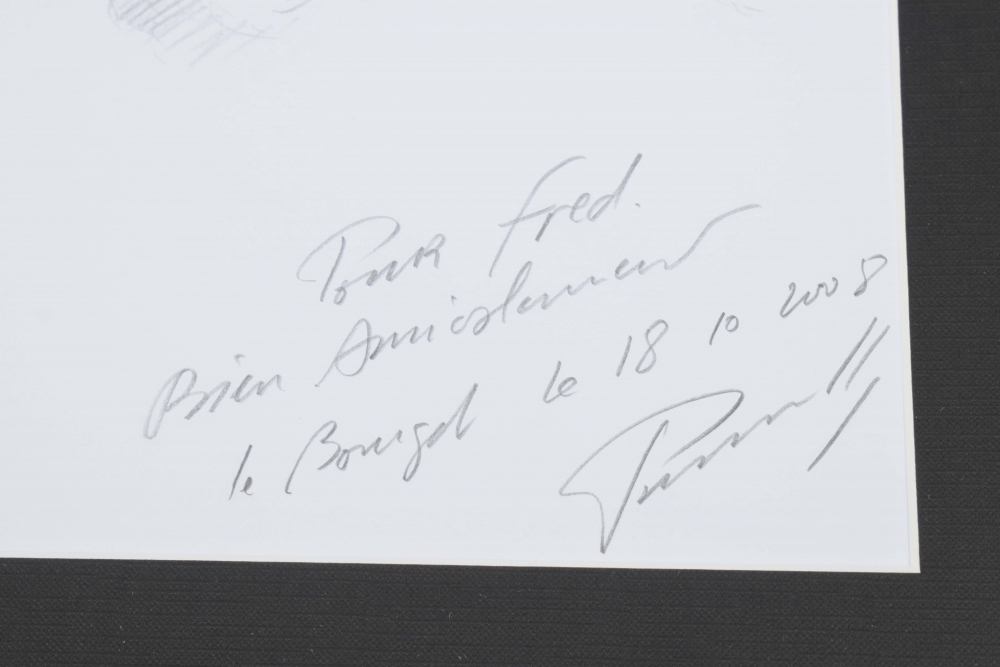 Pour Fred.
Bien Amicalement
le Bourget le 18 10 2008